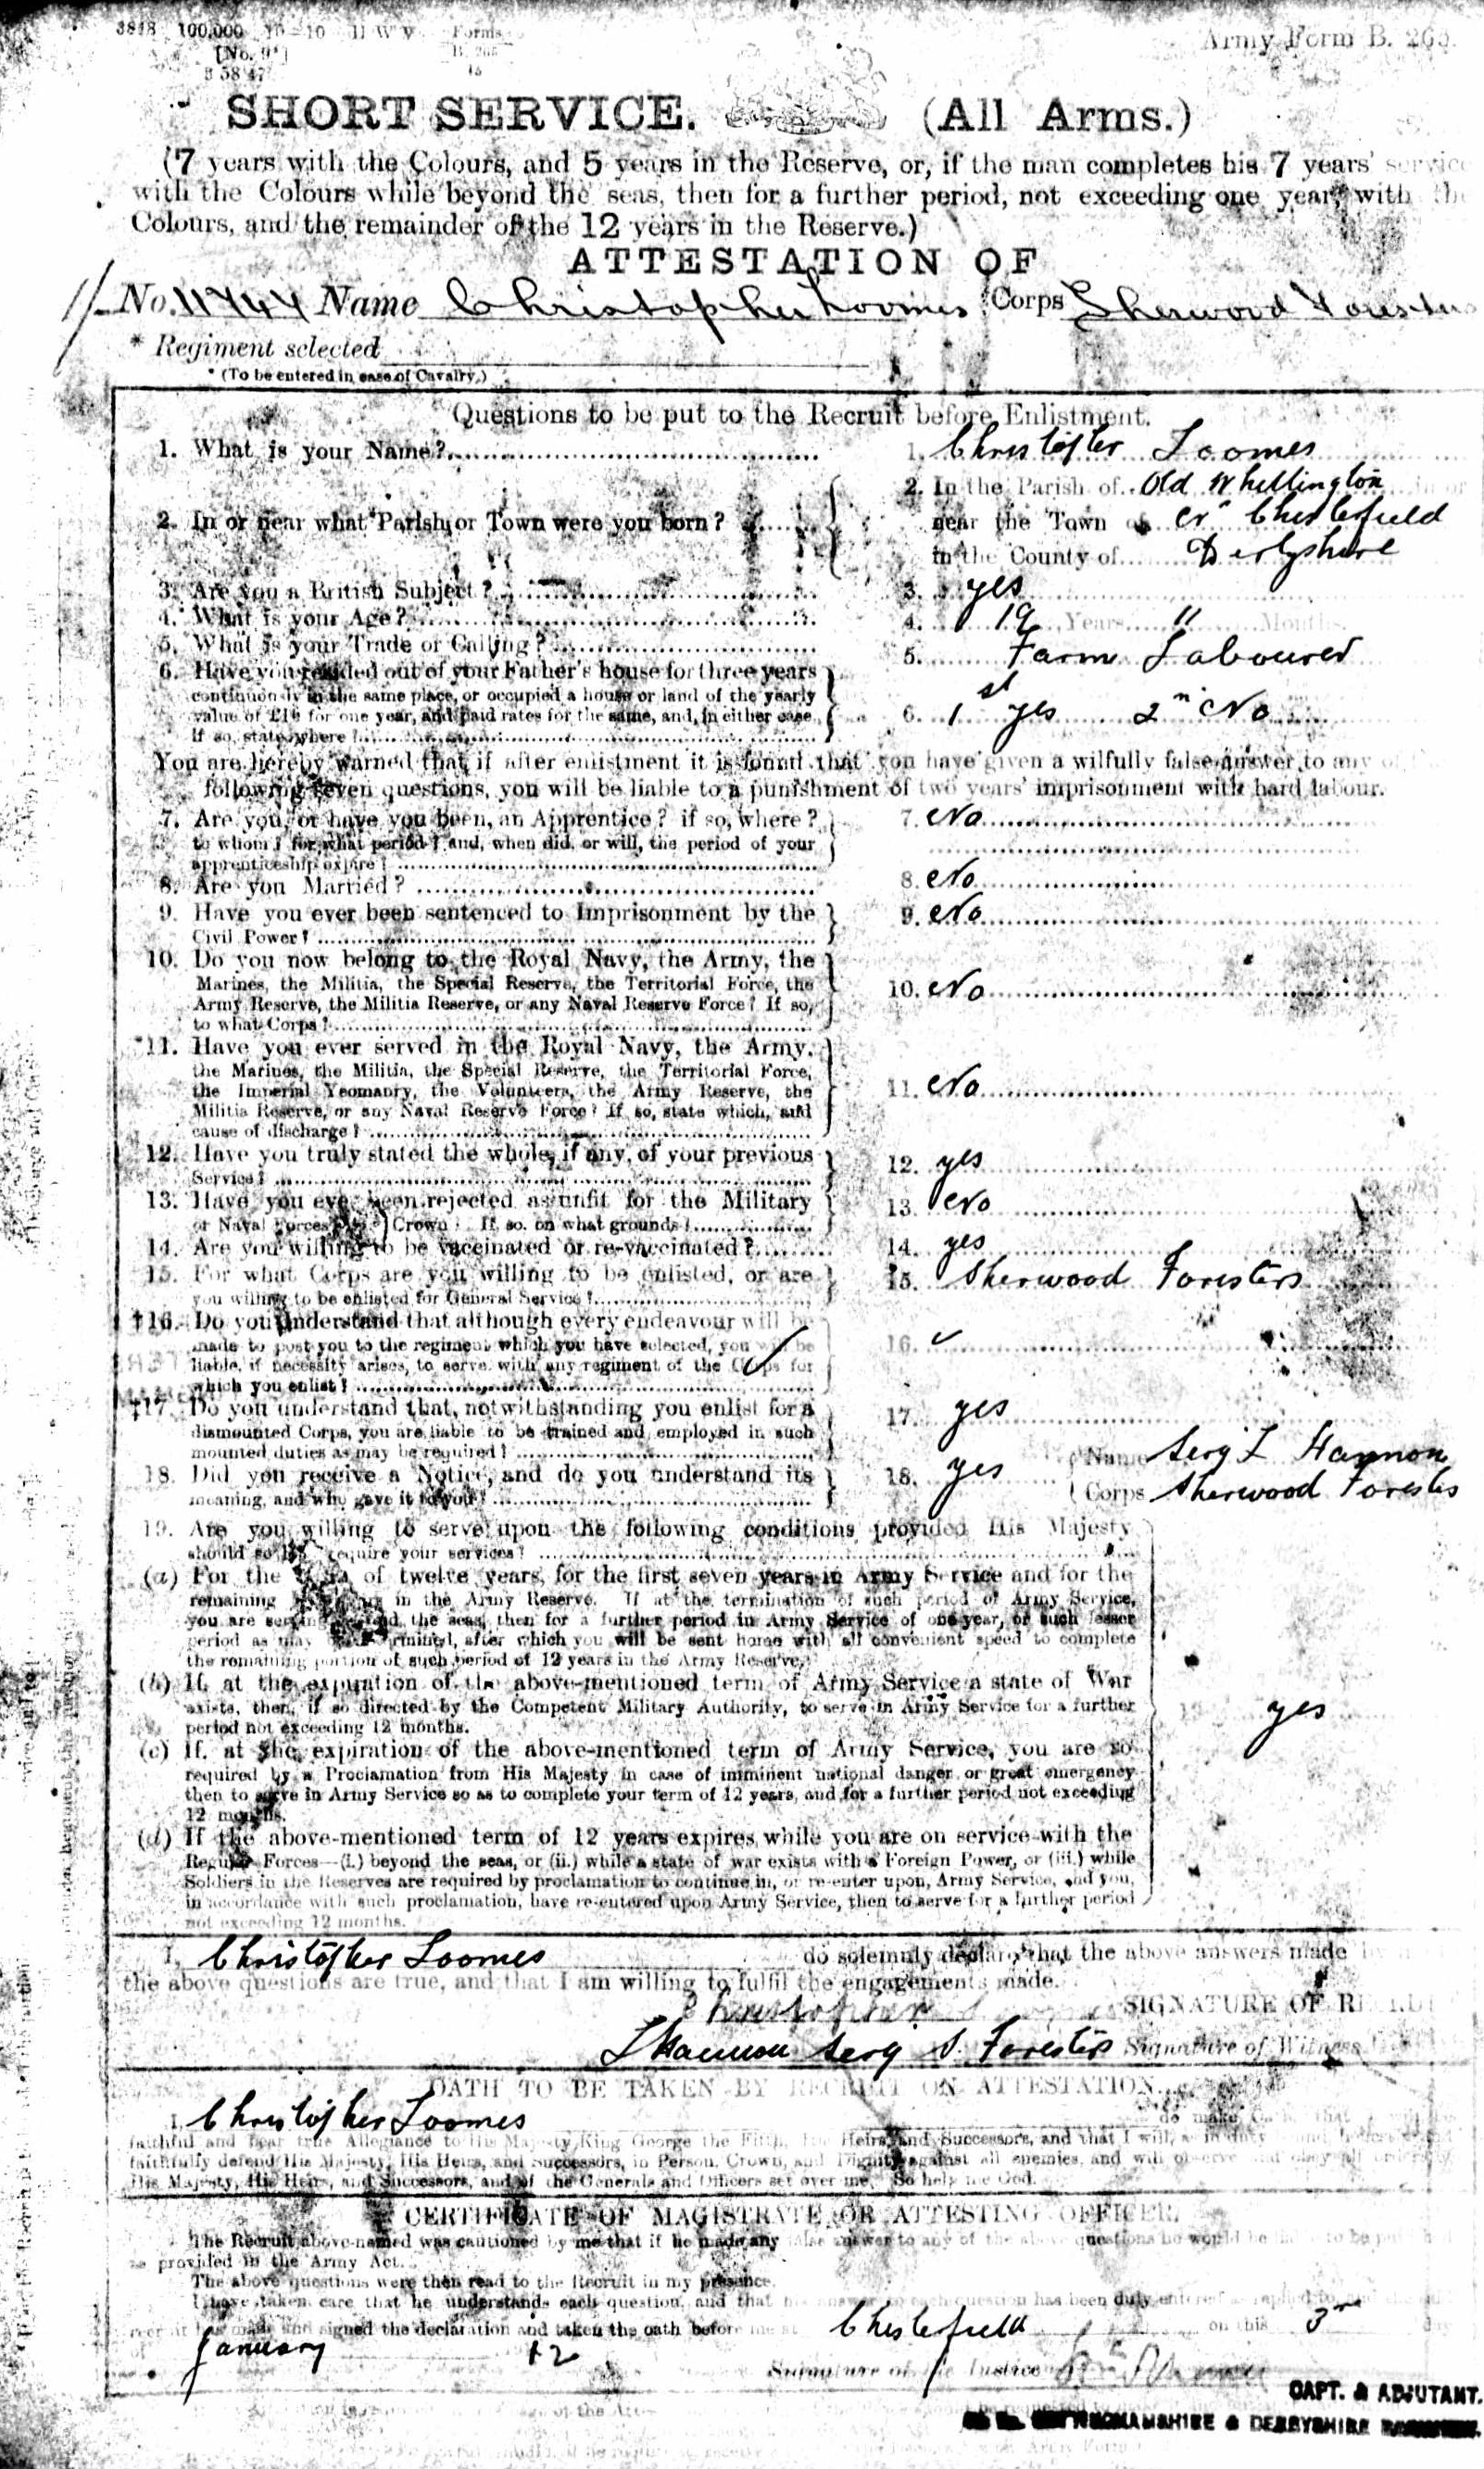 3818 100,000 10—10 H W V Forms
[No. 9*] B. 265
Army Form B. 265.
SHORT SERVICE. (All Arms.)
(7 years with the Colours, and 5 years in the Reserve, or, if the man completes his 7 years' service
with the Colours while beyond the seas, then for a further period, not exceeding one year, with the
Colours, and the remainder of the 12 years in the Reserve.)
ATTESTATION OF
No. 11744 Name Christopher Loomes Corps Sherwood Foresters
* Regiment selected
* (To be entered in case of Cavalry.)
Questions to be put to the Recruit before Enlistment.
1. What is your Name? 1. Christopher Loomes
2. In or near what Parish or Town were you born? 2. In the Parish of Old Whittington in or
near the Town of Cr Chesterfield
in the County of Derbyshire
3. Are you a British Subject? 3. yes
4. What is your Age? 4. 19 Years " Months.
5. What is your Trade or Calling? 5. Farm Labourer
6. Have you resided out of your Father's house for three years
continuously in the same place, or occupied a house or land of the yearly
value of £10 for one year, and paid rates for the same, and, in either case, 6. 1st yes 2n No
if so, state where?
You are hereby warned that if after enlistment it is found that you have given a wilfully false answer to any of
following seven questions, you will be liable to a punishment of two years' imprisonment with hard labour.
7. Are you, or have you been, an Apprentice? if so, where? 7. No
to whom? for what period? and, when did, or will, the period of your
apprenticeship expire?
8. Are you Married? 8. No
9. Have you ever been sentenced to Imprisonment by the 9. No
Civil Power?
10. Do you now belong to the Royal Navy, the Army, the
Marines, the Militia, the Special Reserve, the Territorial Force, the 10. No
Army Reserve, the Militia Reserve, or any Naval Reserve Force? If so,
to what Corps?
*11. Have you ever served in the Royal Navy, the Army,
the Marines, the Militia, the Special Reserve, the Territorial Force,
the Imperial Yeomanry, the Volunteers, the Army Reserve, the 11. No
Militia Reserve, or any Naval Reserve Force? If so, state which, and
cause of discharge?
12. Have you truly stated the whole, if any, of your previous 12. yes
Service?
13. Have you ever been rejected as unfit for the Military 13. No
or Naval Forces of the Crown? If so, on what grounds?
14. Are you willing to be vaccinated or re-vaccinated? 14. yes
15. For what Corps are you willing to be enlisted, or are 15. Sherwood Foresters
you willing to be enlisted for General Service?
†16. Do you understand that although every endeavour will be
made to post you to the regiment which you have selected, you will be 16. ✓
liable, if necessity arises, to serve with any regiment of the Corps for ✓
which you enlist?
‡17. Do you understand that, notwithstanding you enlist for a 17. yes
dismounted Corps, you are liable to be trained and employed in such
mounted duties as may be required?
18. Did you receive a Notice, and do you understand its 18. yes Name Sergt L Hannon
meaning, and who gave it to you? Corps Sherwood Foresters
19. Are you willing to serve upon the following conditions provided His Majesty
should so long require your services?
(a) For the term of twelve years, for the first seven years in Army Service and for the
remaining in the Army Reserve. If at the termination of such period of Army Service,
you are serving beyond the seas, then for a further period in Army Service of one year, or such lesser
period as may be determined, after which you will be sent home with all convenient speed to complete
the remaining portion of such period of 12 years in the Army Reserve.
(b) If, at the expiration of the above-mentioned term of Army Service a state of War
exists, then, if so directed by the Competent Military Authority, to serve in Army Service for a further 19. yes
period not exceeding 12 months.
(c) If, at the expiration of the above-mentioned term of Army Service, you are so
required by a Proclamation from His Majesty in case of imminent national danger or great emergency
then to serve in Army Service so as to complete your term of 12 years, and for a further period not exceeding
12 months.
(d) If the above-mentioned term of 12 years expires while you are on service with the
Regular Forces—(i.) beyond the seas, or (ii.) while a state of war exists with a Foreign Power, or (iii.) while
Soldiers in the Reserves are required by proclamation to continue in, or re-enter upon, Army Service, and you,
in accordance with such proclamation, have re-entered upon Army Service, then to serve for a further period
not exceeding 12 months.
I, Christopher Loomes do solemnly declare that the above answers made by
the above questions are true, and that I am willing to fulfil the engagements made.
Christopher SIGNATURE OF RECRUIT
L Hannon Serg S. Foresters Signature of Witness
OATH TO BE TAKEN BY RECRUIT ON ATTESTATION.
I, Christopher Loomes do make Oath, that I will be
faithful and bear true Allegiance to His Majesty King George the Fifth, His Heirs and Successors, and that I will, as in duty
faithfully defend His Majesty, His Heirs, and Successors, in Person, Crown, and Dignity against all enemies, and will observe and obey all orders of
His Majesty, His Heirs, and Successors, and of the Generals and Officers set over me. So help me God.
CERTIFICATE OF MAGISTRATE OR ATTESTING OFFICER.
The Recruit above-named was cautioned by me that if he made any false answer to any of the above questions he would be liable to be
as provided in the Army Act.
The above questions were then read to the Recruit in my presence.
I have taken care that he understands each question, and that his answer to each question has been duly entered as replied to
made and signed the declaration and taken the oath before me at Chesterfield on this 3r day
January 12
Signature of the Justice
CAPT. & ADJUTANT.
DERBYSHIRE